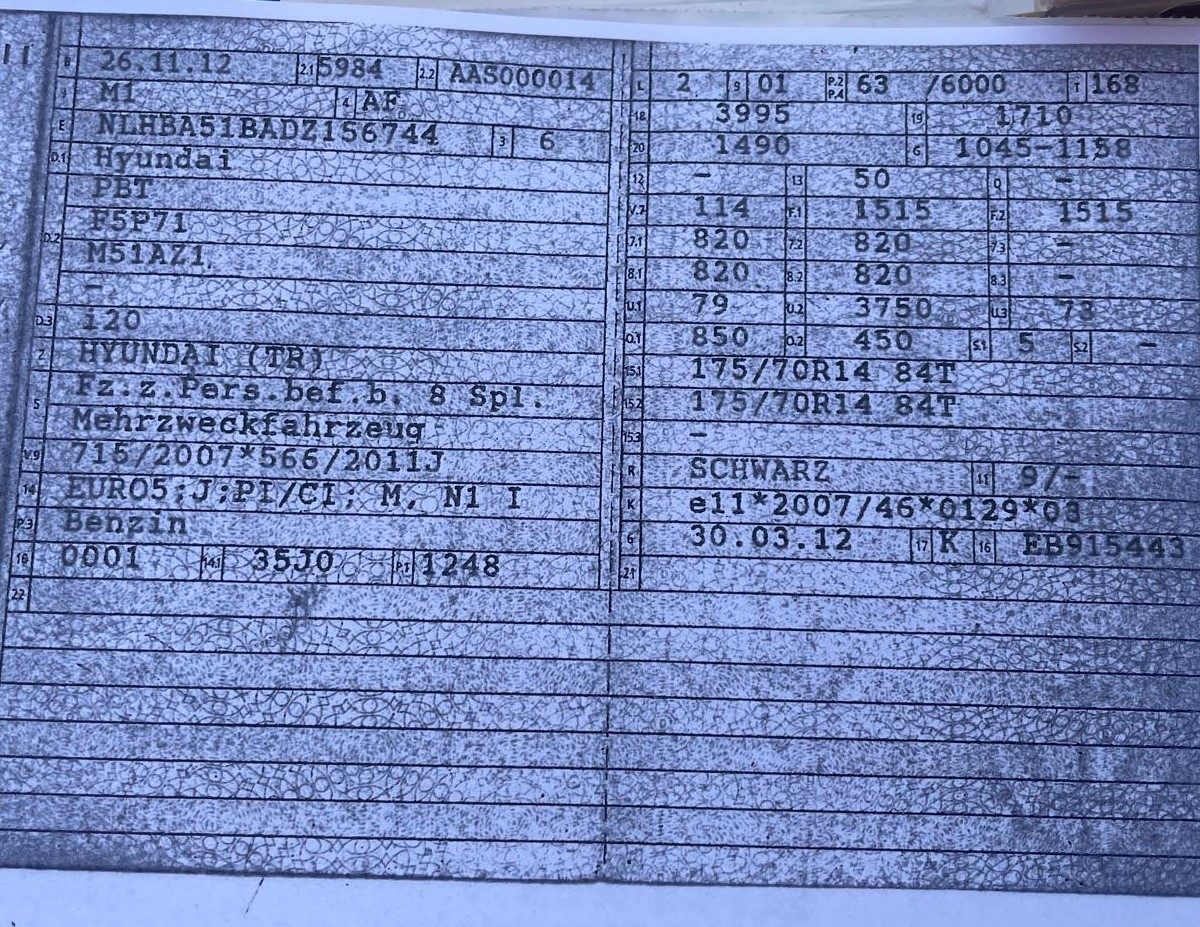 II
B 26.11.12 2.1 5984 2.2 AAS000014
J M1 4 AF
E NLHBA51BADZ156744 3 6
D.1 Hyundai
PBT
D.2 F5P71
M51AZ1
-
D.3 i20
2 HYUNDAI (TR)
5 Fz.z.Pers.bef.b. 8 Spl.
Mehrzweckfahrzeug
V.9 715/2007*566/2011J
14 EURO5;J;PI/CI; M, N1 I
P.3 Benzin
10 0001 14.1 35J0 P.1 1248
22
L 2 9 01 P.2 P.4 63 /6000 T 168
18 3995 19 1710
20 1490 G 1045-1158
12 - 13 50 Q -
V.7 114 F.1 1515 F.2 1515
7.1 820 7.2 820 7.3 -
8.1 820 8.2 820 8.3 -
U.1 79 U.2 3750 U.3 73
O.1 850 O.2 450 S.1 5 S.2 -
15.1 175/70R14 84T
15.2 175/70R14 84T
15.3 -
R SCHWARZ 11 9/-
K e11*2007/46*0129*03
6 30.03.12 17 K 16 EB915443
21